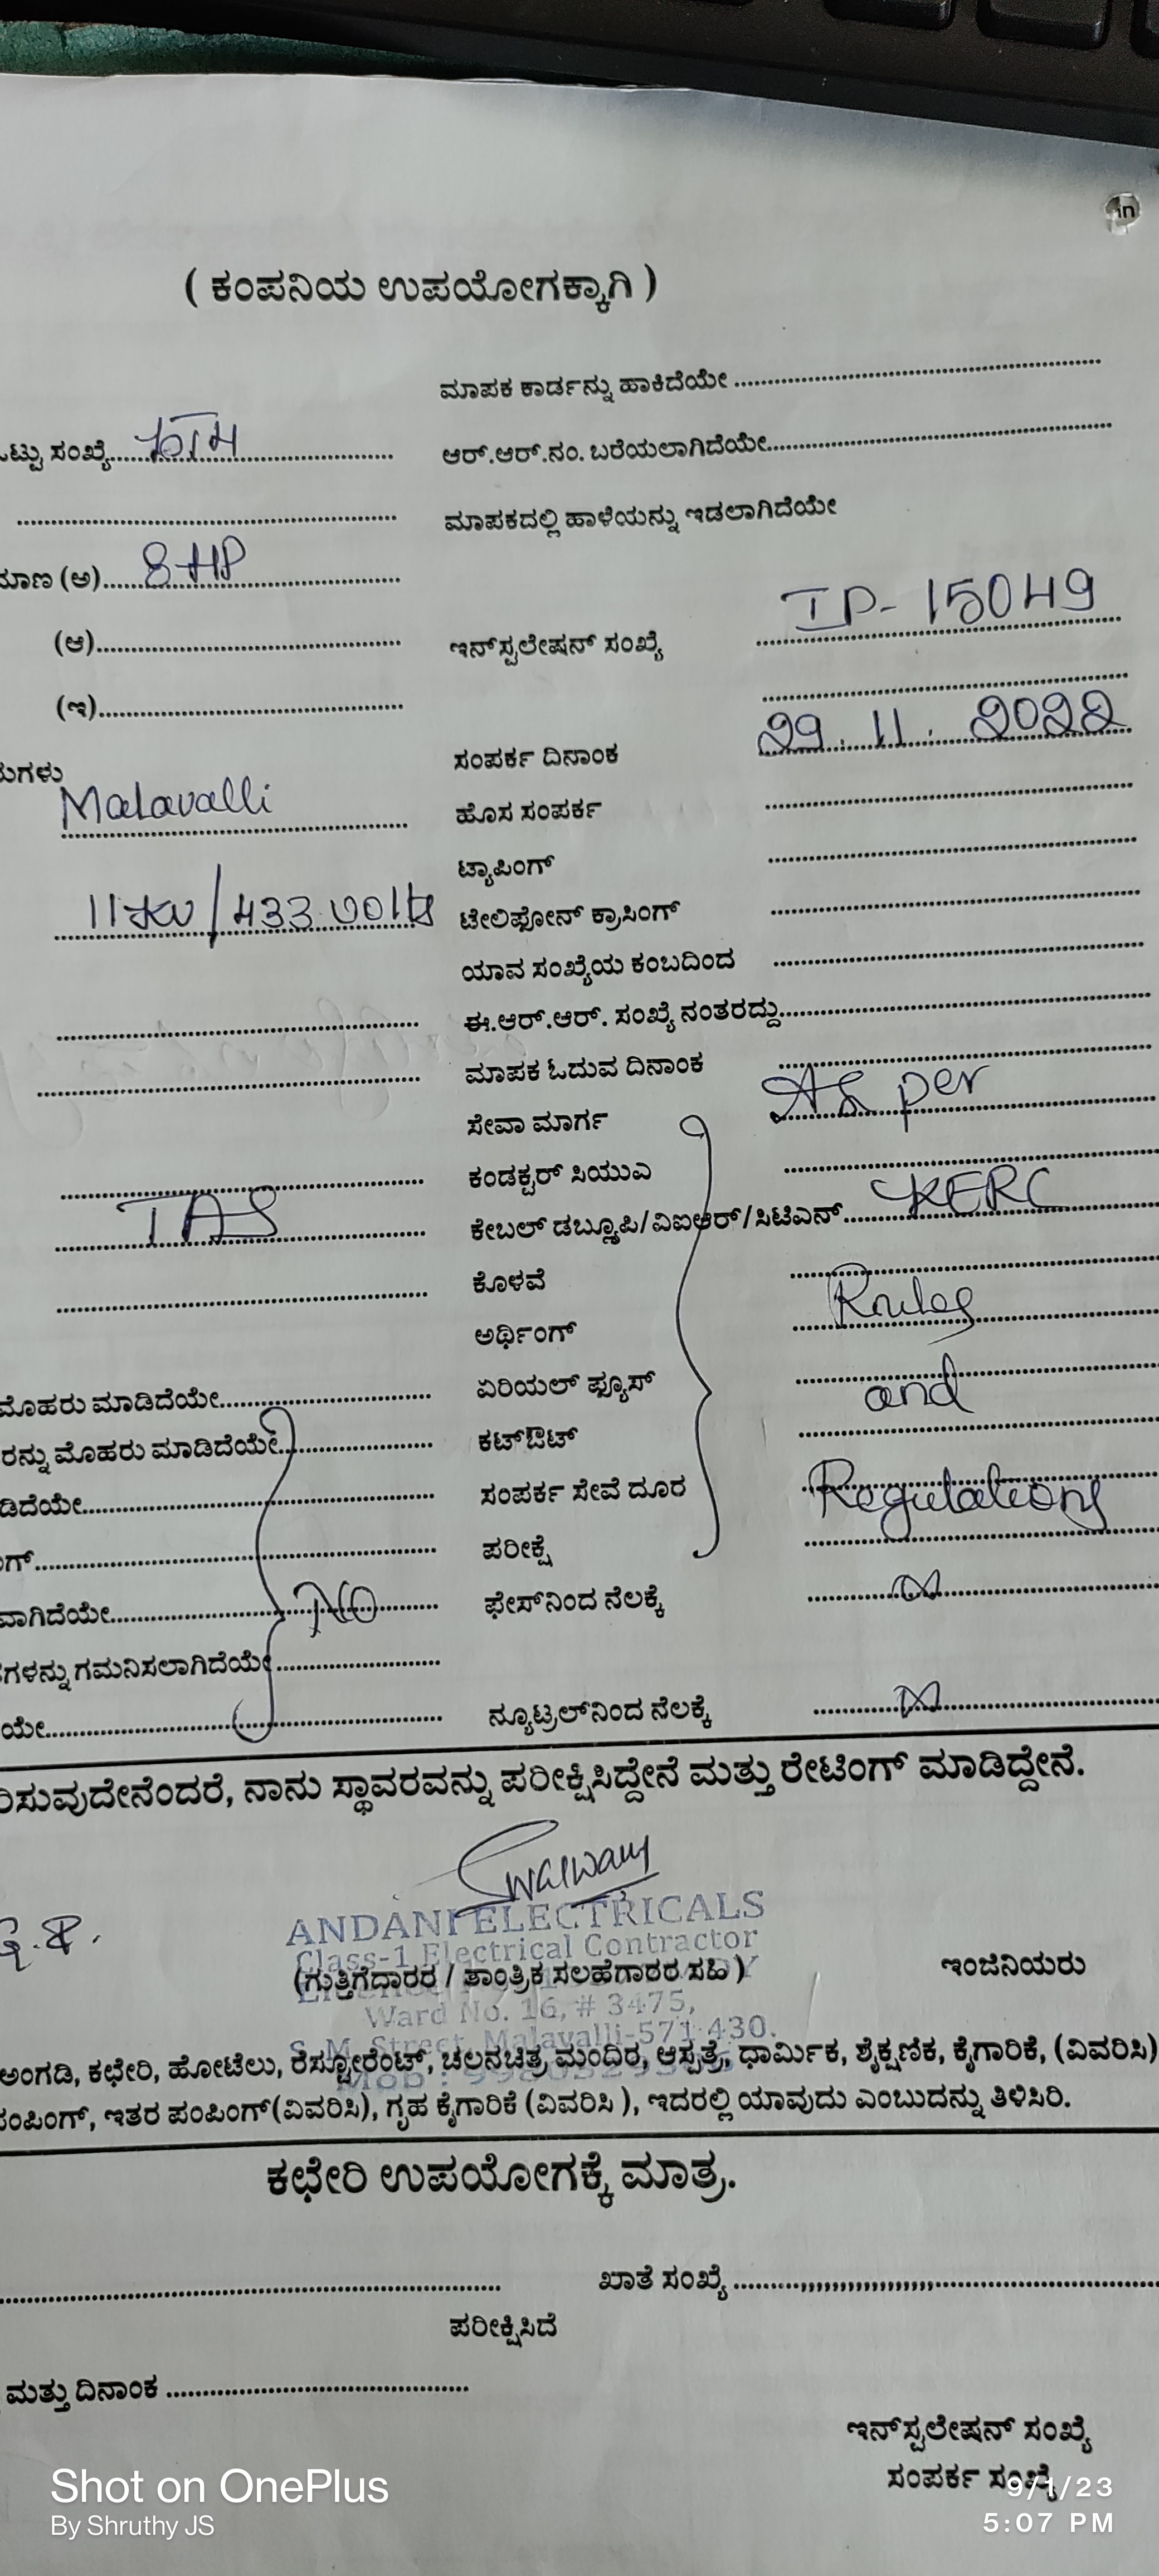 in
( ಕಂಪನಿಯ ಉಪಯೋಗಕ್ಕಾಗಿ )
ಮಾಪಕ ಕಾರ್ಡನ್ನು ಹಾಕಿದೆಯೇ
ಒಟ್ಟು ಸಂಖ್ಯೆ
ಆರ್.ಆರ್.ನಂ. ಬರೆಯಲಾಗಿದೆಯೇ
ಮಾಪಕದಲ್ಲಿ ಹಾಳೆಯನ್ನು ಇಡಲಾಗಿದೆಯೇ
ಮಾಣ (ಅ) 8HP
(ಆ)
ಇನ್‌ಸ್ಟಲೇಷನ್ ಸಂಖ್ಯೆ IP-15049
(ಇ)
ಸಂಪರ್ಕ ದಿನಾಂಕ 29.11.2022
ಗಳು
Malavalli
ಹೊಸ ಸಂಪರ್ಕ
ಟ್ಯಾಪಿಂಗ್
11KV/433 volts
ಟೇಲಿಫೋನ್ ಕ್ರಾಸಿಂಗ್
ಯಾವ ಸಂಖ್ಯೆಯ ಕಂಬದಿಂದ
ಈ.ಆರ್.ಆರ್. ಸಂಖ್ಯೆ ನಂತರದ್ದು
ಮಾಪಕ ಓದುವ ದಿನಾಂಕ
ಸೇವಾ ಮಾರ್ಗ As per
ಕಂಡಕ್ಟರ್ ಸಿಯುಎ
TAS
ಕೇಬಲ್ ಡಬ್ಲ್ಯೂಪಿ/ವಿಐಆರ್/ಸಿಟಿಎನ್ KERC
ಕೊಳವೆ
ಅರ್ಥಿಂಗ್ Rules
ಮೊಹರು ಮಾಡಿದೆಯೇ
ಏರಿಯಲ್ ಫ್ಯೂಸ್ and
ರನ್ನು ಮೊಹರು ಮಾಡಿದೆಯೇ
ಕಟ್‌ಔಟ್
ಡಿದೆಯೇ
ಸಂಪರ್ಕ ಸೇವೆ ದೂರ Regulations
ಗ್
ಪರೀಕ್ಷೆ
ವಾಗಿದೆಯೇ NO
ಫೇಸ್‌ನಿಂದ ನೆಲಕ್ಕೆ ∞
ಗಳನ್ನು ಗಮನಿಸಲಾಗಿದೆಯೇ
ಯೇ
ನ್ಯೂಟ್ರಲ್‌ನಿಂದ ನೆಲಕ್ಕೆ ∞
ರಿಸುವುದೇನೆಂದರೆ, ನಾನು ಸ್ಥಾವರವನ್ನು ಪರೀಕ್ಷಿಸಿದ್ದೇನೆ ಮತ್ತು ರೇಟಿಂಗ್ ಮಾಡಿದ್ದೇನೆ.
ANDANI ELECTRICALS
Class-1 Electrical Contractor
(ಗುತ್ತಿಗೆದಾರರ / ತಾಂತ್ರಿಕ ಸಲಹೆಗಾರರ ಸಹಿ )
ಇಂಜಿನಿಯರು
Ward No. 16, # 3475,
S. M. Street, Malavalli-571 430.
ಅಂಗಡಿ, ಕಛೇರಿ, ಹೋಟೆಲು, ರೆಸ್ಟೋರೆಂಟ್, ಚಲನಚಿತ್ರ ಮಂದಿರ, ಆಸ್ಪತ್ರೆ, ಧಾರ್ಮಿಕ, ಶೈಕ್ಷಣಿಕ, ಕೈಗಾರಿಕೆ, (ವಿವರಿಸಿ)
ಪಂಪಿಂಗ್, ಇತರ ಪಂಪಿಂಗ್(ವಿವರಿಸಿ), ಗೃಹ ಕೈಗಾರಿಕೆ (ವಿವರಿಸಿ ), ಇದರಲ್ಲಿ ಯಾವುದು ಎಂಬುದನ್ನು ತಿಳಿಸಿರಿ.
ಕಛೇರಿ ಉಪಯೋಗಕ್ಕೆ ಮಾತ್ರ.
ಖಾತೆ ಸಂಖ್ಯೆ
ಪರೀಕ್ಷಿಸಿದೆ
ಮತ್ತು ದಿನಾಂಕ
ಇನ್‌ಸ್ಟಲೇಷನ್ ಸಂಖ್ಯೆ
ಸಂಪರ್ಕ ಸಂಖ್ಯೆ
Shot on OnePlus
By Shruthy JS
9/1/23
5:07 PM